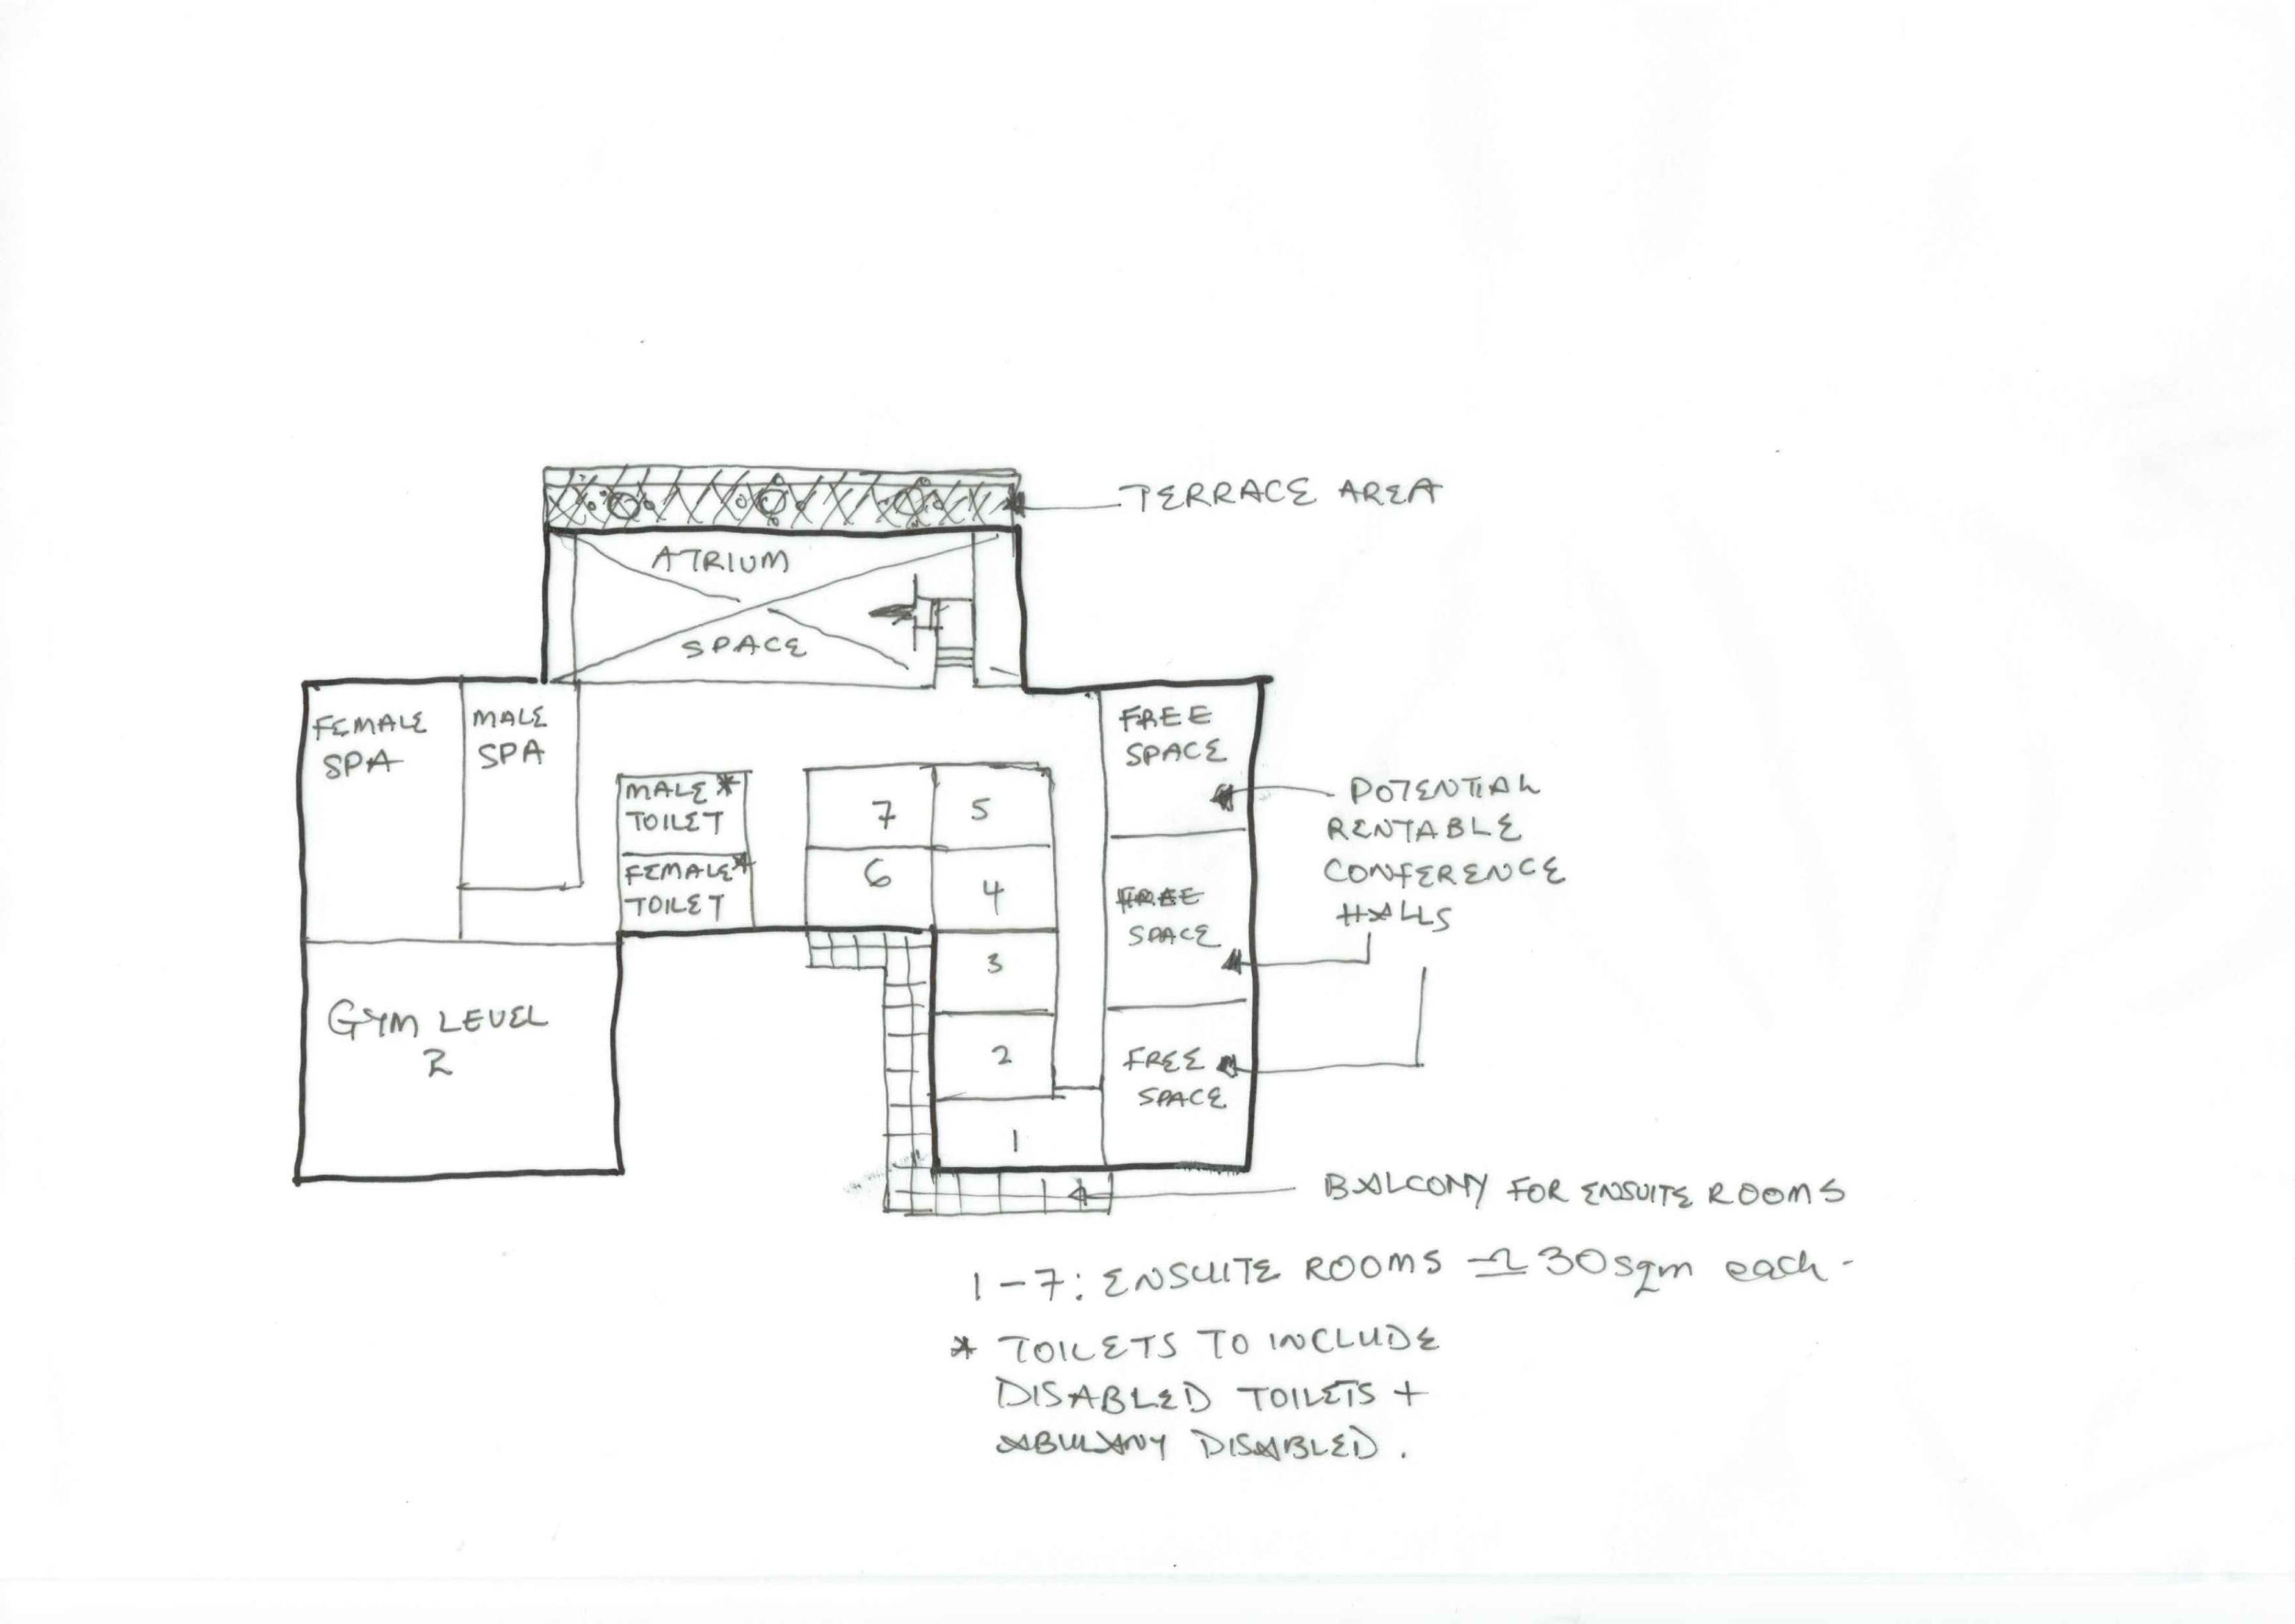 TERRACE AREA
ATRIUM
SPACE
FEMALE
SPA
MALE
SPA
MALE *
TOILET
FEMALE *
TOILET
7
5
6
4
3
2
1
GYM LEVEL
2
FREE
SPACE
FREE
SPACE
FREE
SPACE
POTENTIAL
RENTABLE
CONFERENCE
HALLS
BALCONY FOR ENSUITE ROOMS
1-7: ENSUITE ROOMS ≏ 30sqm each-
* TOILETS TO INCLUDE
DISABLED TOILETS +
ABULANY DISABLED.